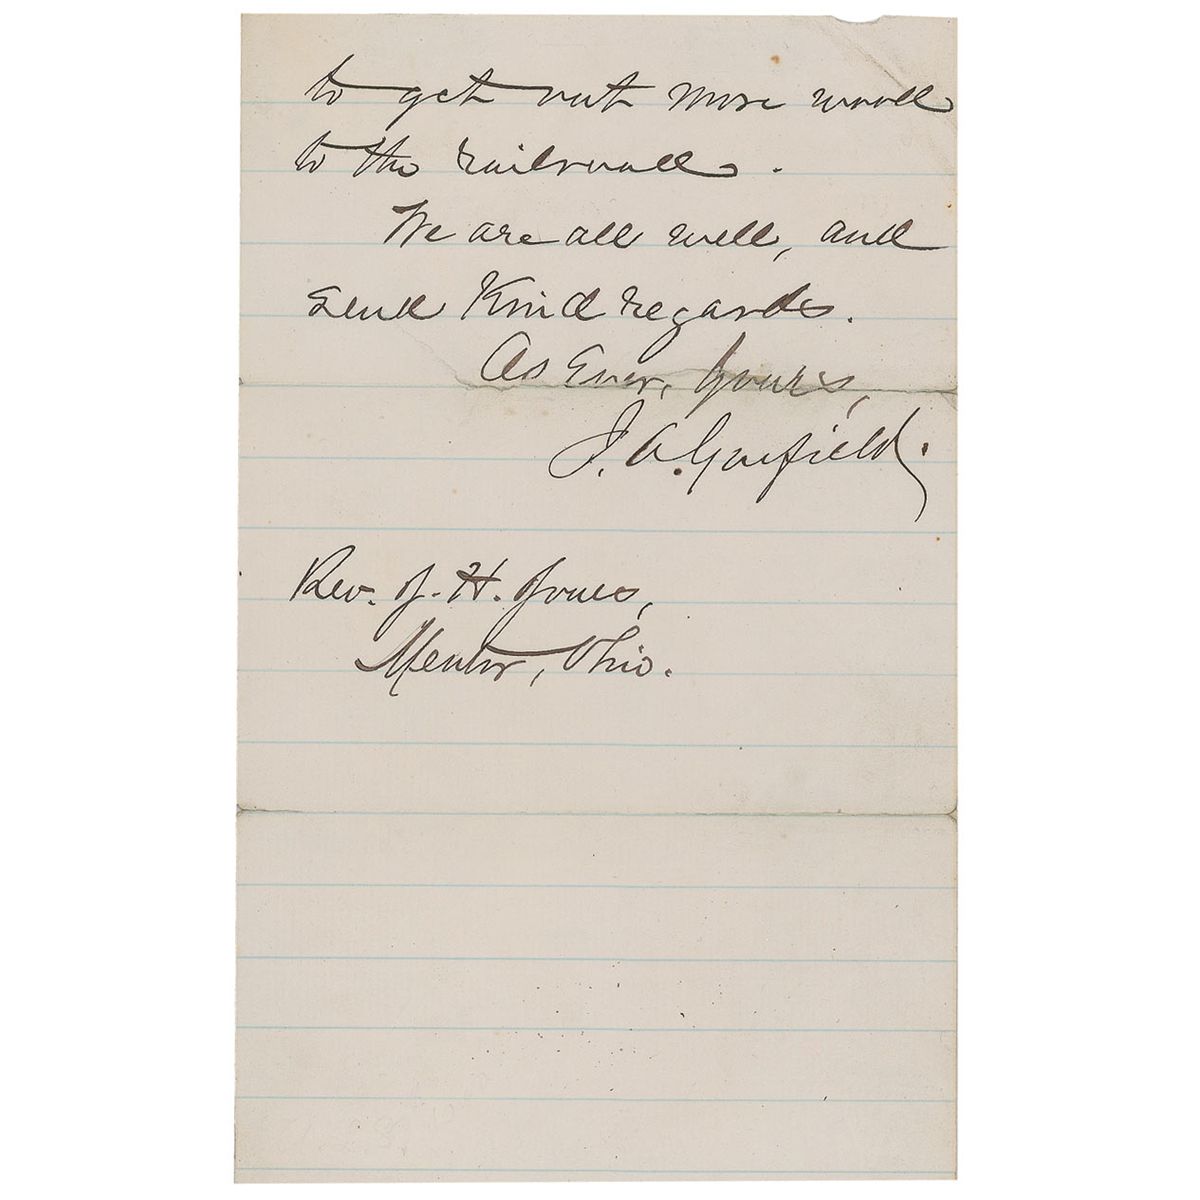 to get out more wood
to the railroad.
We are all well, and
send Kind regards.
As Ever, Yours,
J. A. Garfield.
Rev. J. H. Jones,
Mentor, Ohio.